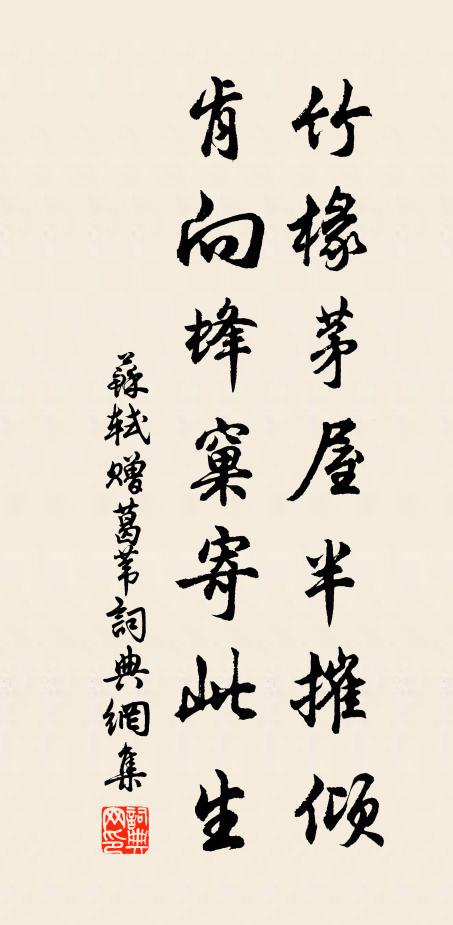 竹椽茅屋半摧傾
肯向蜂窠寄此生
蘇軾贈葛葦詞典網集
詞典網印